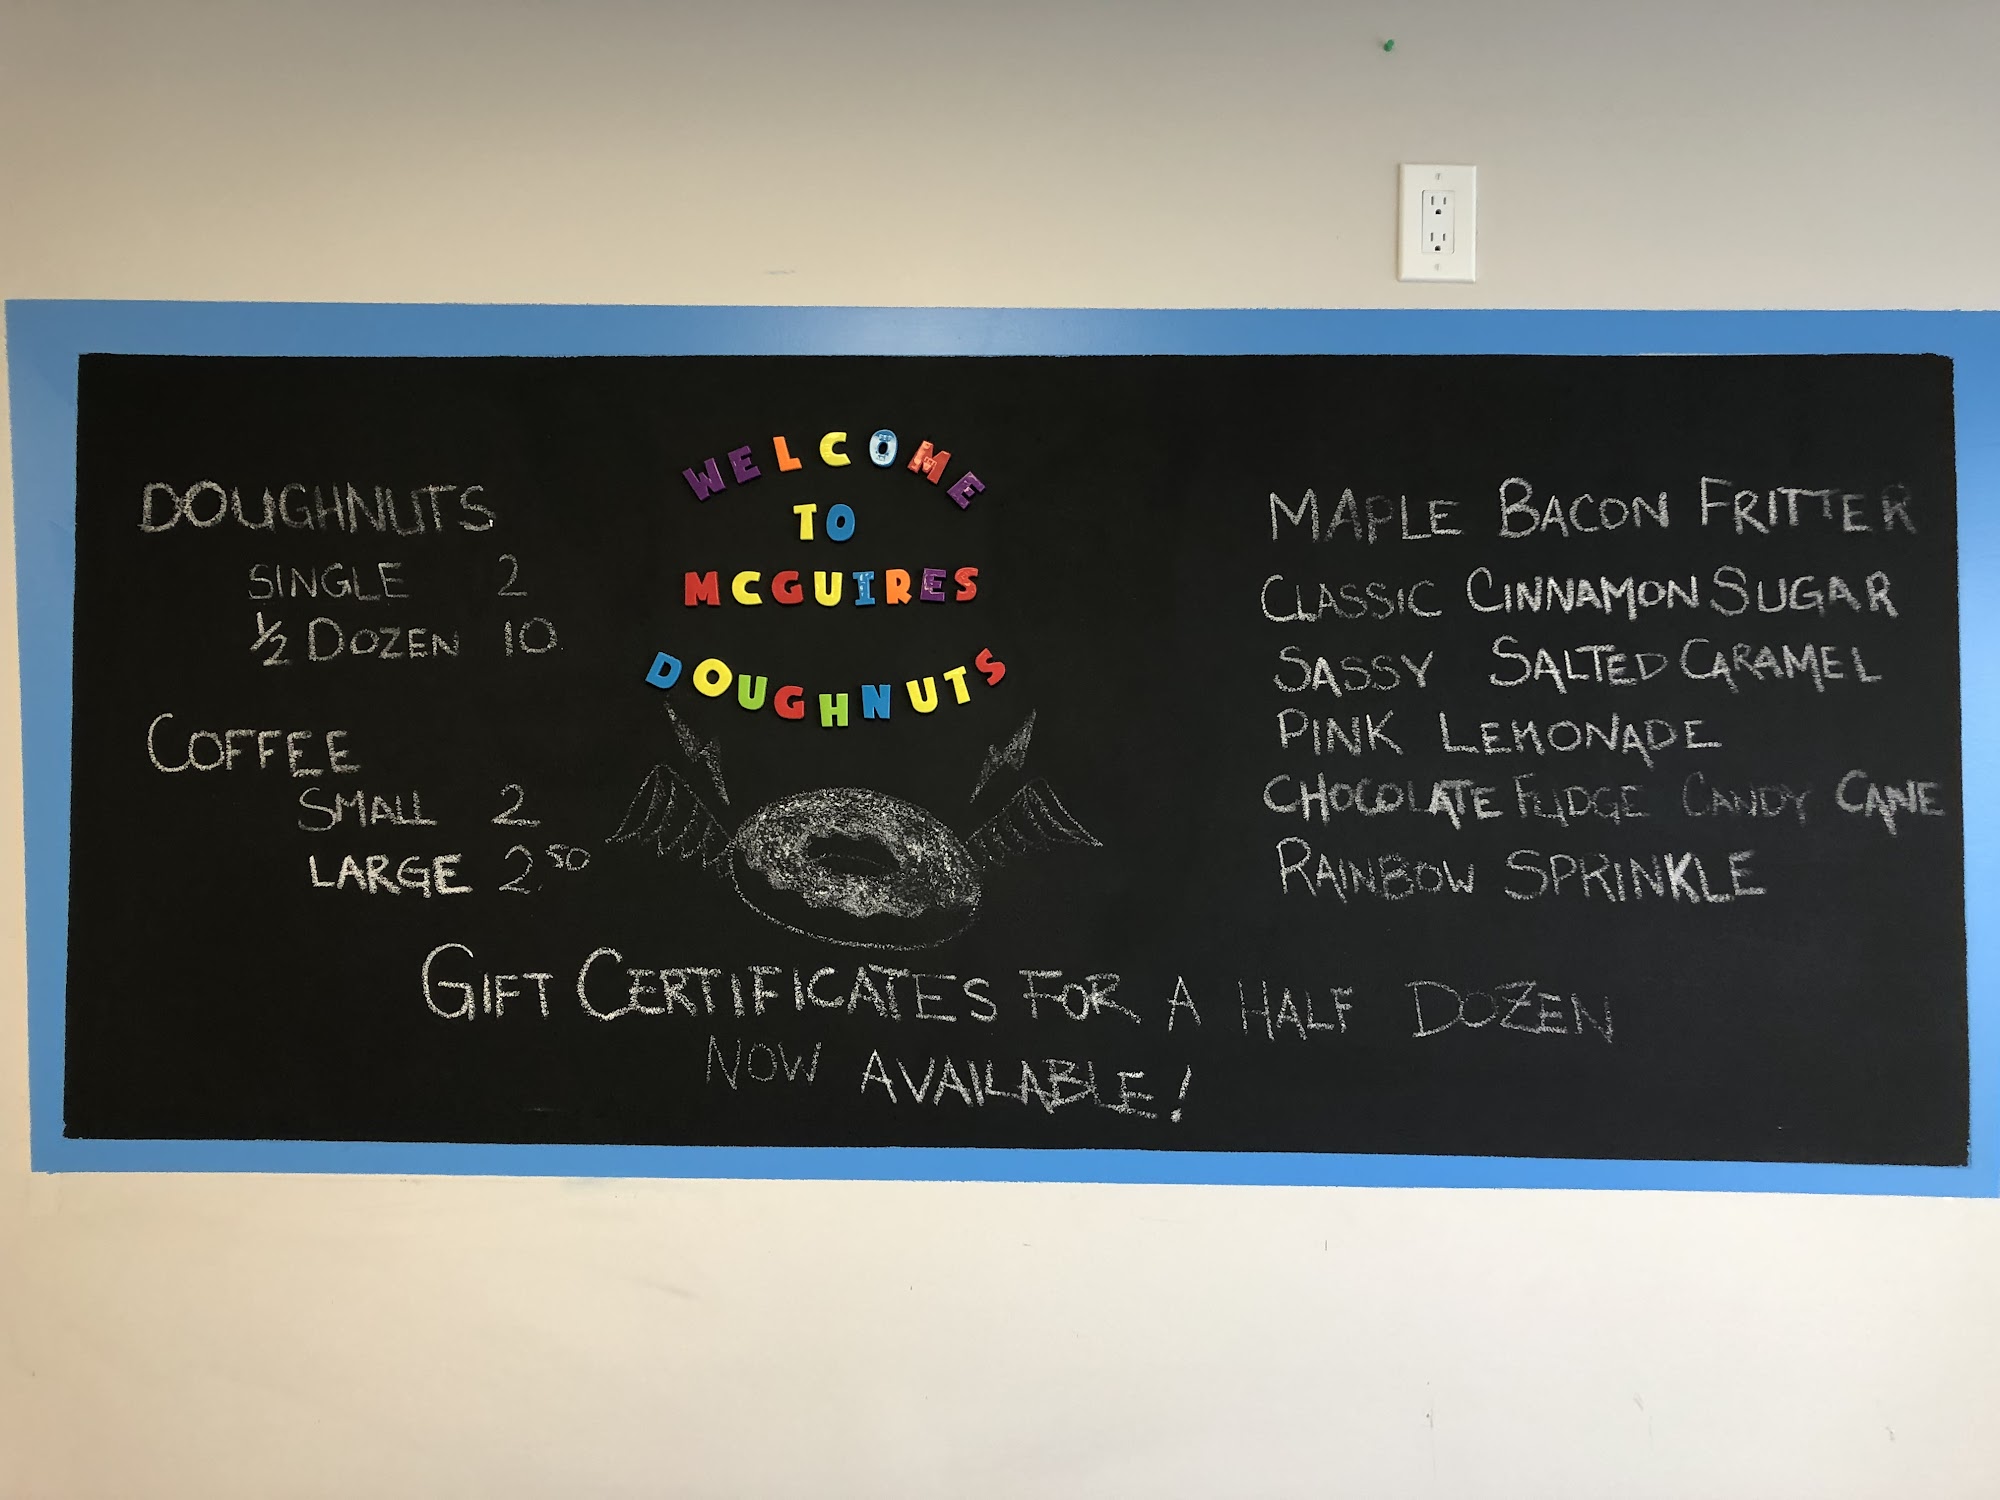 DOUGHNUTS
SINGLE 2
½ DOZEN 10
COFFEE
SMALL 2
LARGE 2.50
WELCOME
TO
MCGUIRES
DOUGHNUTS
MAPLE BACON FRITTER
CLASSIC CINNAMON SUGAR
SASSY SALTED CARAMEL
PINK LEMONADE
CHOCOLATE FUDGE CANDY CANE
RAINBOW SPRINKLE
GIFT CERTIFICATES FOR A HALF DOZEN
NOW AVAILABLE!